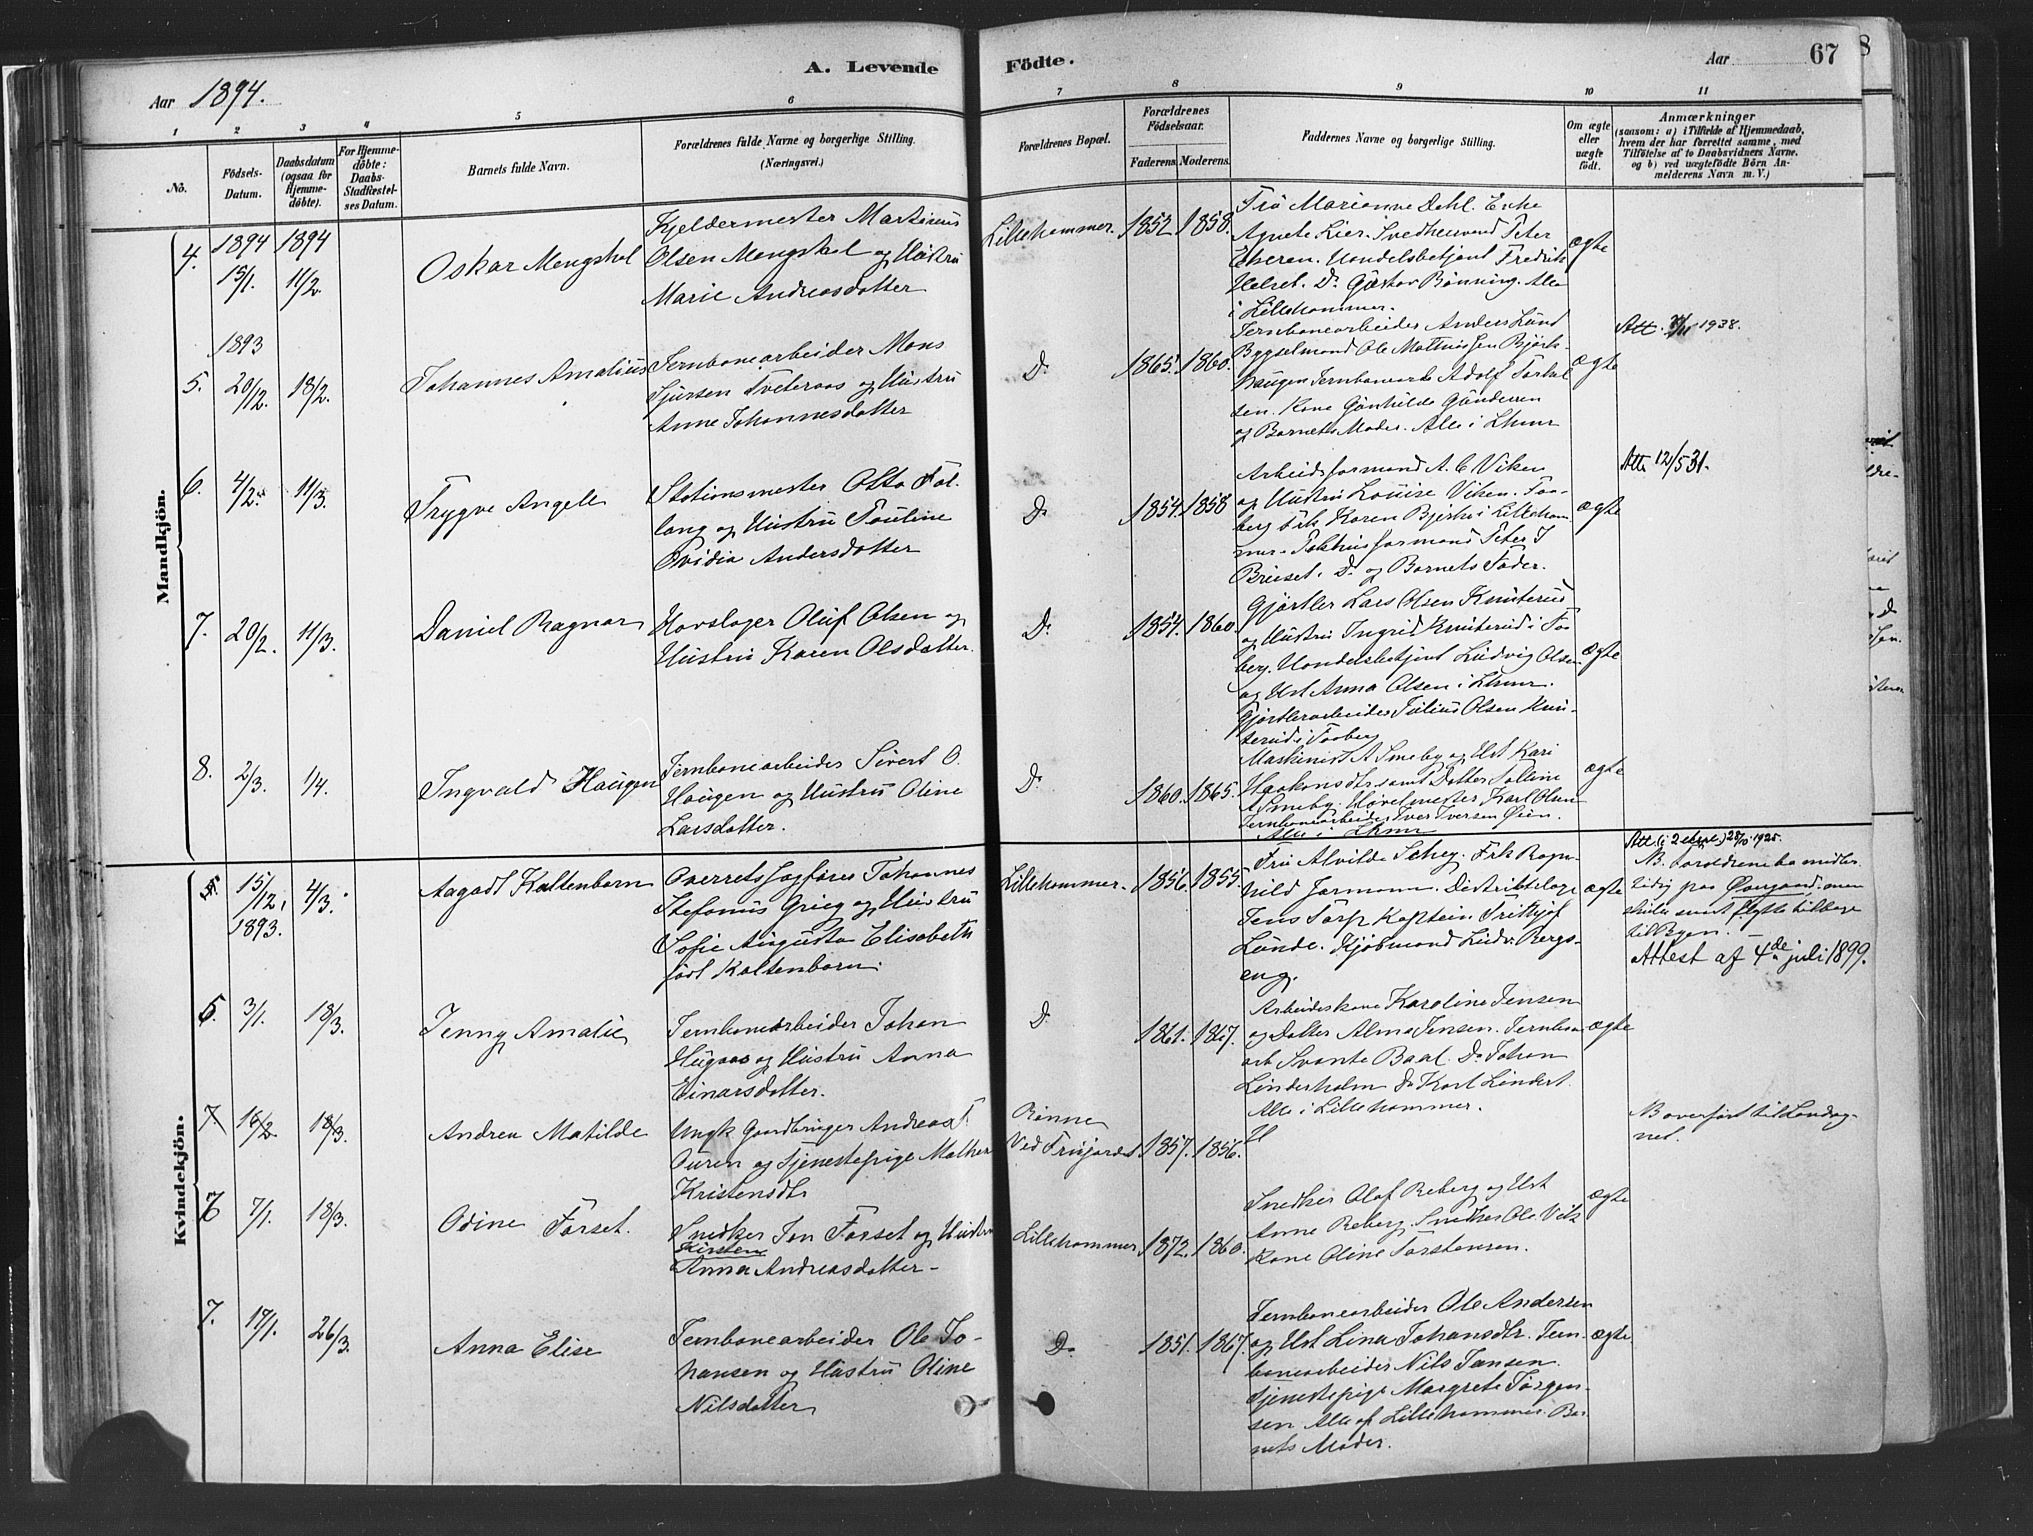 A. Levende
Födte.
Aar 1894.
Aar
67
1
2
3
4
5
6
7
8
9
10
11
No.
Födsels-
Datum.
Daabsdatum
(ogsaa for
Hjemme-
döbte).
For Hjemme-
döbte:
Daabs-
Stadfæstel-
ses Datum.
Barnets fulde Navn.
Forældrenes fulde Navne og borgerlige Stilling.
(Næringsvei.)
Forældrenes Bopæl.
Forældrenes
Födselsaar.
Faderens.
Moderens.
Faddernes Navne og borgerlige Stilling.
Om ægte
eller
uægte
födt.
Anmærkninger
(saasom: a) i Tilfælde af Hjemmedaab,
hvem der har forrettet samme, med
Tilföielse af to Daabsvidners Navne,
og b) ved uægtefödte Börn An-
melderens Navn m. V.)
Mandkjön.
4.
1894
15/1.
1894
11/2.
Oskar Mengshol
Kjeldermester Martinus
Olsen Mengshol og Hustru
Marie Andreasdatter
Lillehammer.
1852
1858.
Frø Marianne Dahl.
Agnete Lier. Peter
Handelsbetjent Fredrik
D. Gustav Bønning. Alle
i Lillehammer.
ægte
5.
1893
20/12.
18/2.
Johannes Amalius
Jernbanearbeider Mons
Sjursen Tveteraas og Hustru
Anne Johannesdatter
Do
1865.
1860.
Jernbanearbeider Anders Lund
Bygselmand Ole Mathiassen Bjørk-
haugen Jernbanearb Adolf Torkel
sen. Kone Gunhilde
og Barnets Moder. Alle i Lhmr
ægte
Att. 1938.
6.
4/2.
11/3.
Trygve Angell
Stationsmester Otto Fol-
lang og Hustru Pauline
Ovidia Andersdatter
Do
1854.
1858
Arbeidsformand A. C Viken
og Hustru Louise Viken. Faa-
berg Frk Karen Bjerke i Lilleham
mer. Peter J
Bruset. Do og Barnets Fader.
ægte
Att. 12/5 31.
7.
20/2.
11/3.
Daniel Ragnar
Hovslager Oluf Olsen og
Hustru Karen Olsdatter.
Do
1854.
1860.
Gjørtler Lars Olsen Knuterud
og Hustru Ingrid Knuterud i Faa
berg. Handelsbetjent Ludvig Olsen
og Ust Anna Olsen i Lhmr.
Gjørtlerarbeider Julius Olsen Knu-
terud i Faaberg
ægte
8.
2/3.
1/4.
Ingvald Haugen
Jernbanearbeider Sivert O.
Haugen og Hustru Oline
Larsdatter.
Do
1860.
1865.
Maskinist A Smeby og Ust Kari
Haakonsdtr samt Datter
A Smeby. Høvelmester Karl Olsen
Jernbanearbeider Iver Iversen Øien.
Alle i Lhmr
ægte
Kvindekjön.
15/12
1893.
4/3.
Aagodt Kaltenborn
Overretssagfører Johannes
Stefanus Grieg og Hustru
Sofie Augusta Elisabeth
født Kaltenborn.
Lillehammer.
1856.
1855.
Fru Alvilde Scheg. Frk Ragn-
hild Jarmann. Distriktslæge
Jens Torp Kaptein Frithjof
Lunde. Kjøbmand Ludv. Bergs-
eng.
ægte
1925.
NB. Forældrene bo midler-
tidig paa Øvergaard, men
skulle snart flytte tilbage
til Byen.
Attest af 4de juli 1899.
6.
3/1.
18/3.
Jenny Amalie
Jernbanearbeider Johan
Hugaas og Hustru Anna
Einarsdatter.
Do
1861.
1867.
Arbeidskone Karoline Jensen
og Datter Alma Jensen. Jernbane
arb Svante Baal. Do Johan
Linderholm Do Karl Lindert.
Alle i Lillehammer.
ægte
7
16/2
18/3.
Andrea Matilde
Ungk Gaardbruger Andreas T.
Furen og Tjenestepige Mathea
Kristensdtr
Rønne
Ved Frisgaardet
1857.
1856.
U
NB overført til Landsog-
net.
7/1.
18/3.
Odine Forset.
Snedker Jon Forset og Hustru
Kirsten
Anna Andreasdatter-
Lillehammer
1872.
1860.
Snedker Olaf Reberg og Ust
Anne Reberg. Snedker Ole Vik
Kone Oline Torstensen.
ægte
7.
17/1.
26/3.
Anna Elise
Jernbanearbeider Ole Jo-
hansen og Hustru Oline
Nilsdatter
Do
1851.
1867.
Jernbanearbeider Ole Andersen
og Ust Lina Johansdtr. Jern-
banearbeider Nils Jansen.
Tjenestepige Margrete Jørgen-
sen. Alle af Lillehammer. Bar
nets Moder.
ægte